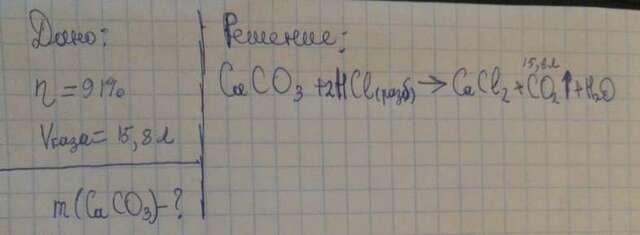 Дано:
η = 91%
Vгаза = 15,8 л
m(CaCO3) - ?
Решение:
15,8 л
CaCO3 + 2HCl(разб) → CaCl2 + CO2↑ + H2O